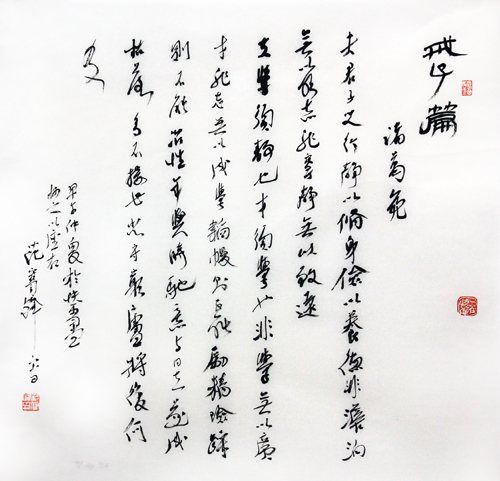 戒子篇
诸葛亮
夫君子之行静以修身俭以養德非澹泊
無以明志非寧静無以致遠
夫學須静也才須學也非學無以廣
才非志無以成學慆慢則不能勵精險躁
則不能冶性年與時馳意与日去遂成
枯落多不接世悲守窮廬將復何
及
甲午仲夏於